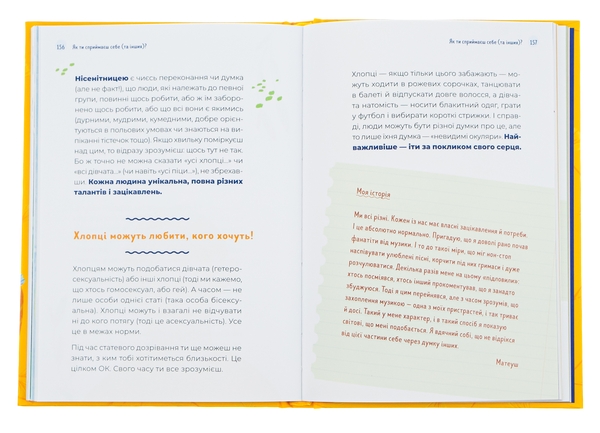 156
Як ти сприймаєш себе (та інших)?
Нісенітницею є чиєсь переконання чи думка
(але не факт!), що люди, які належать до певної
групи, повинні щось робити, або ж їм заборо-
нено щось робити, або що всі вони є якимись
(дурними, мудрими, кумедними, добре орієн-
туються в польових умовах чи знаються на ви-
піканні тістечок тощо). Якщо хвильку поміркуєш
над цим, то відразу зрозумієш: щось тут не так.
Бо ж точно не можна сказати «усі хлопці...» чи
«всі дівчата...» (чи навіть «усі піци...»), не збрехав-
ши. Кожна людина унікальна, повна різних
талантів і зацікавлень.
Хлопці можуть любити, кого хочуть!
Хлопцям можуть подобатися дівчата (гетеро-
сексуальність) або інші хлопці (тоді ми кажемо,
що хтось гомосексуал, або гей). А часом — не
лише особи однієї статі (така особа бісексу-
альна). Хлопці можуть і взагалі не відчувати
ні до кого потягу (тоді це асексуальність). Усе
це в межах норми.
Під час статевого дозрівання ти ще можеш не
знати, з ким тобі хотітиметься близькості. Це
цілком ОК. Свого часу ти все зрозумієш.
Як ти сприймаєш себе (та інших)?
157
Хлопці — якщо тільки цього забажають — мо-
жуть ходити в рожевих сорочках, танцювати
в балеті й відпускати довге волосся, а дівча-
та натомість — носити блакитний одяг, грати
у футбол і вибирати короткі стрижки. І справ-
ді, люди можуть бути різної думки про це, але
то лише їхня думка — «невидимі окуляри». Най-
важливіше — іти за покликом свого серця.
Моя історія
Ми всі різні. Кожен із нас має власні зацікавлення й потреби.
І це абсолютно нормально. Пригадую, що я доволі рано почав
фанатіти від музики. І то до такої міри, що міг нон-стоп
наспівувати улюблені пісні, корчити під них гримаси і дуже
розчулюватися. Декілька разів мене на цьому «підловили»:
хтось посміявся, хтось інший прокоментував, що я занадто
збуджуюся. Тоді я цим переймався, але з часом зрозумів, що
захоплення музикою — одна з моїх пристрастей, і так триває
й досі. Такий у мене характер, і в такий спосіб я показую
світові, що мені подобається. Я вдячний собі, що не відрікся
від цієї частини себе через думку інших.
Матеуш